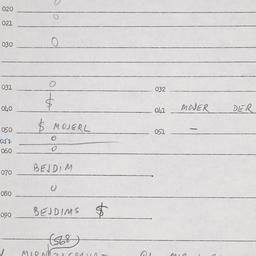 020 0
021 0
030 0
031 0 032
040 $ 041 MOJER DER
050 $ MOJERL 051 —
052 0
060 0
070 BEJDIM
080 0
090 BEJDIMS $
(568)